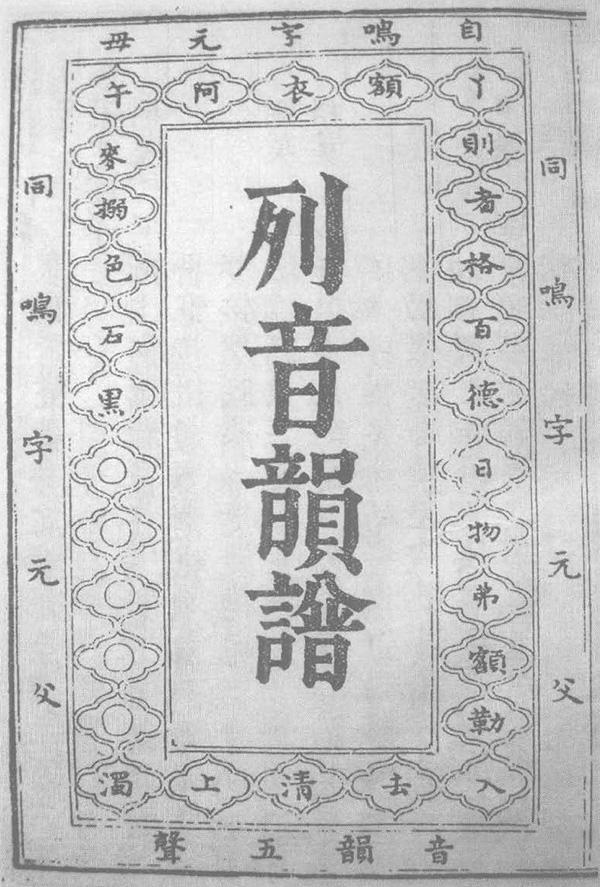 自鳴字元母
丫額衣阿午
同鳴字元父
則者格百德日物弗額勒
列音韻譜
麥搦色石黑○○○○○
同鳴字元父
入去清上濁
音韻五聲